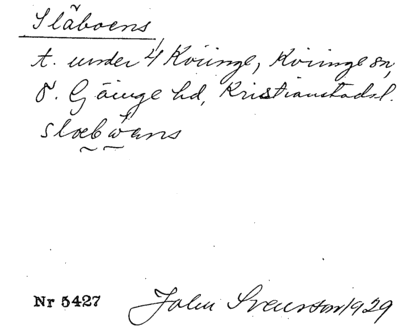 Slåboens
t. under 4 Kviinge, Kviinge sn,
Ö. Göinge hd, Kristianstads l.
slæbẘens
Nr 5427 John Svensson 1929